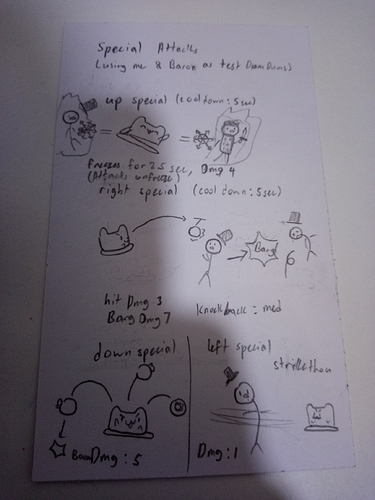 Special Attacks
(using me & Baron as test DumDums)
up special (cool down: 5 sec)
= =
Freezes for 2.5 sec, Dmg 4
(Attacks unfreeze)
right special (cooldown: 5 sec)
Bang
hit Dmg 3
Bang Dmg 7
Knockback: med
down special
left special
Dmg: 1
Dmg: 5